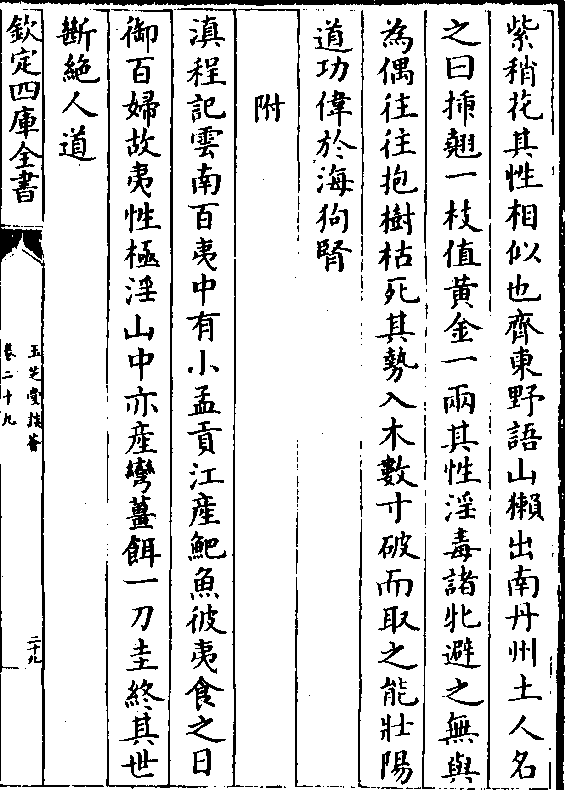 紫稍花其性相似也齊東野語山獺出南丹州土人名
之曰揷翹一枝值黃金一兩其性淫毒諸牝避之無與
為偶往往抱樹枯死其勢入木數寸破而取之能壯陽
道功偉於海狗腎
附
滇程記雲南百夷中有小孟貢江産鮑魚彼夷食之日
御百婦故夷性極淫山中亦産彎薑餌一刀圭終其世
斷絶人道
欽定四庫全書
玉芝堂談薈
卷二十九
二十九